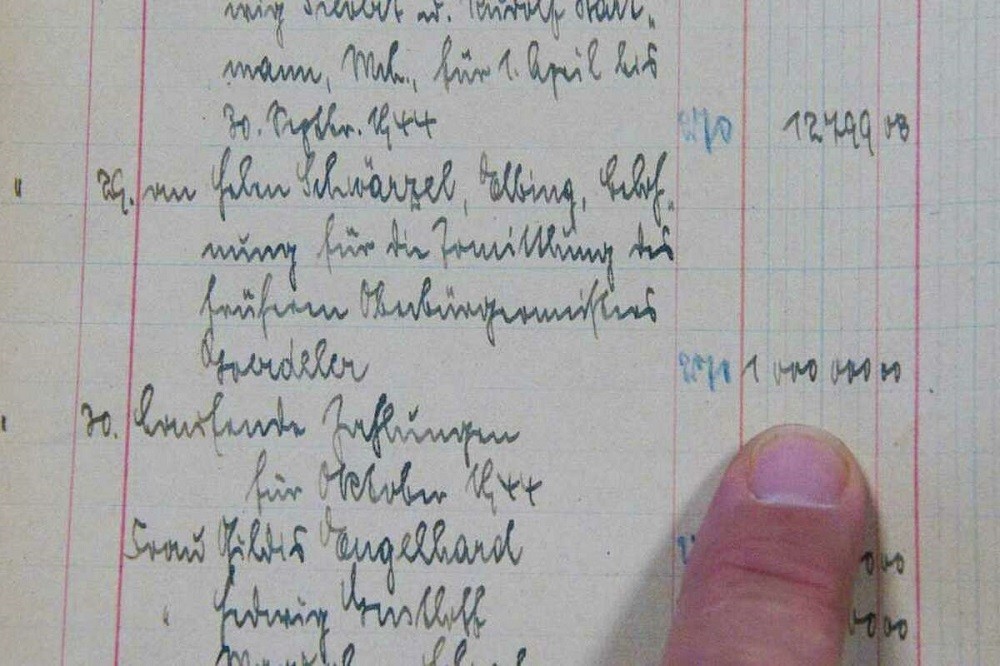 mann, Mch., für 1. April bis
30. Septbr. 1944 2270 12799 03
" 29. an Helen Schwärzel, Elbing, Beloh-
nung für die Ermittlung des
früheren Oberbürgermeisters
Goerdeler 2270 1 000 000 00
" 30. Laufende Zahlungen
für Oktober 1944
Frau Hildis Engelhard 000
" Hedwig Gustloff 0000